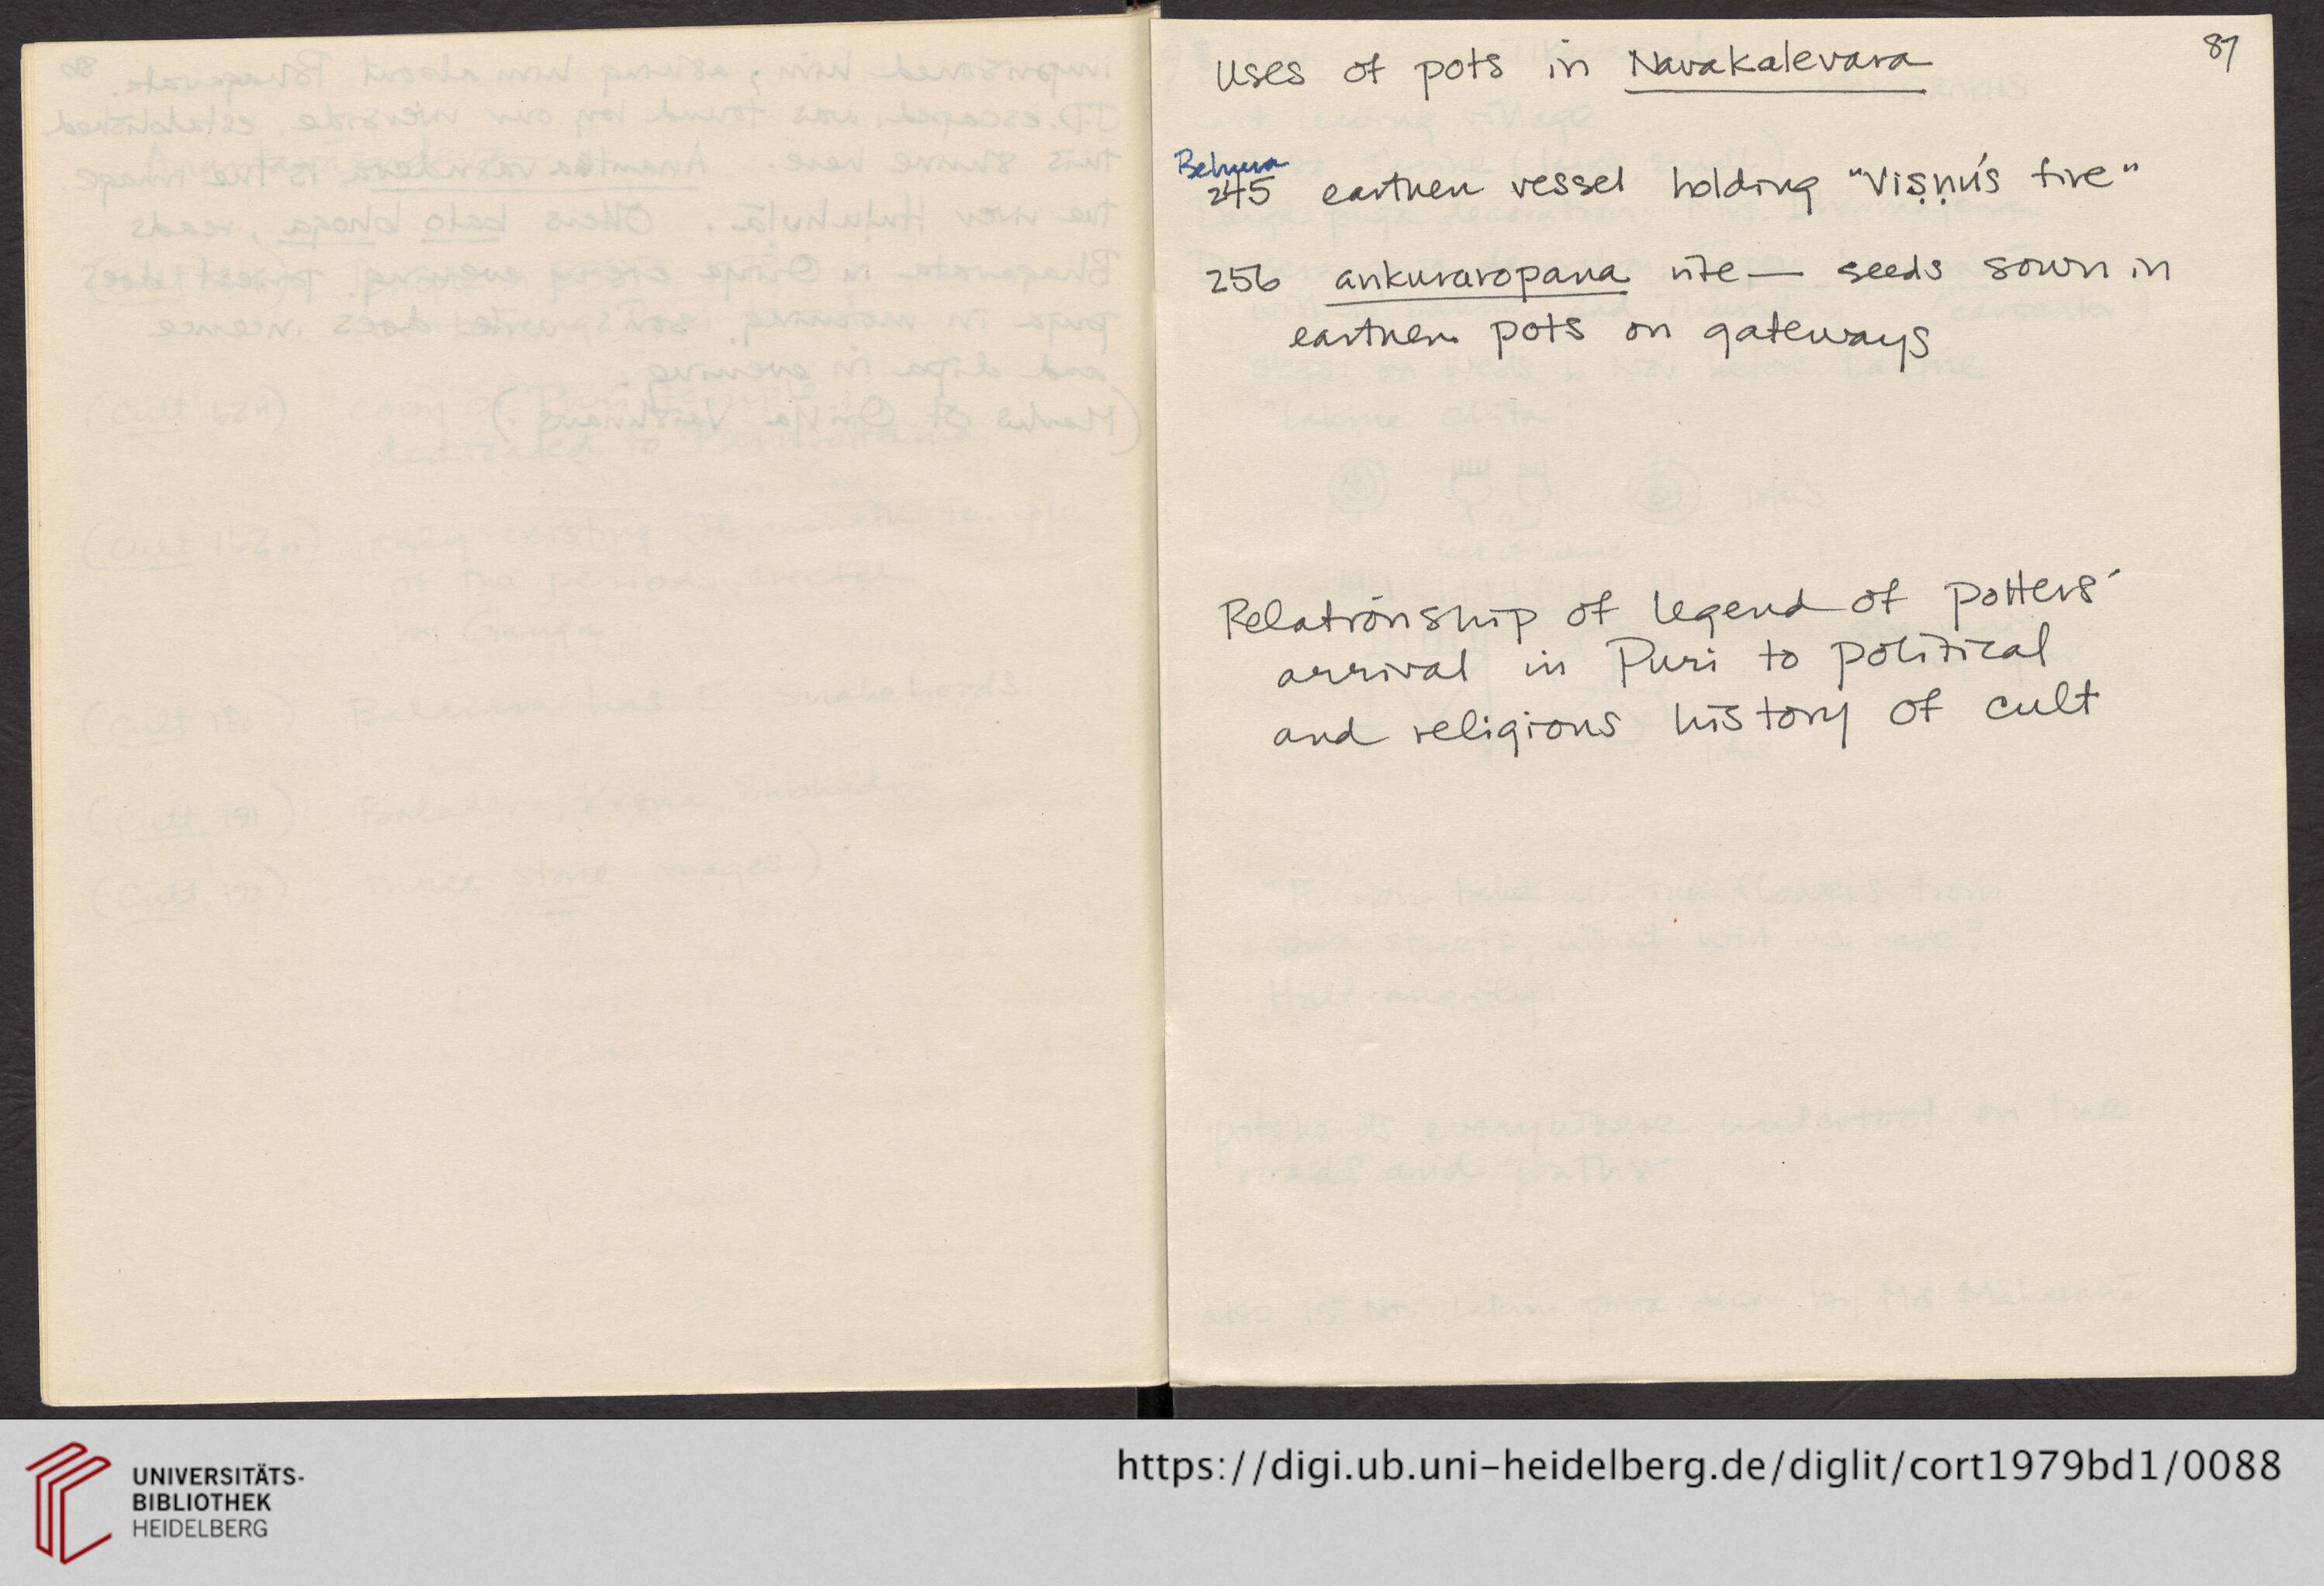 87
Uses of pots in Navakalevara
Behura
245 earthen vessel holding "Viṣṇu's fire"
256 ankuraropana rite — seeds sown in
earthen pots on gateways
Relationship of legend of potters'
arrival in Puri to political
and religious history of cult
UNIVERSITÄTS-
BIBLIOTHEK
HEIDELBERG
https://digi.ub.uni-heidelberg.de/diglit/cort1979bd1/0088